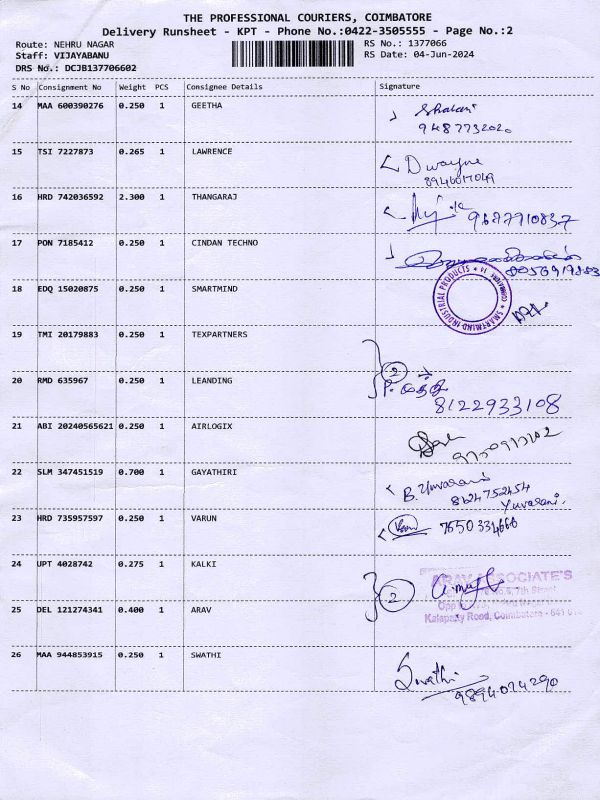 THE PROFESSIONAL COURIERS, COIMBATORE
Delivery Runsheet - KPT - Phone No.:0422-3505555 - Page No.:2
Route: NEHRU NAGAR
RS No.: 1377066
Staff: VIJAYABANU
RS Date: 04-Jun-2024
DRS No.: DCJB137706602
S No Consignment No Weight PCS Consignee Details Signature
14 MAA 600390276 0.250 1 GEETHA
Shalani
9487732020
15 TSI 7227873 0.265 1 LAWRENCE
Dwayne
8946017049
16 HRD 742036592 2.300 1 THANGARAJ
9687710837
17 PON 7185412 0.250 1 CINDAN TECHNO
8056919883
18 EDQ 15020875 0.250 1 SMARTMIND
SMARTMIND INDUSTRIAL PRODUCTS
19 TMI 20179883 0.250 1 TEXPARTNERS
2
20 RMD 635967 0.250 1 LEANDING
8122933108
21 ABI 20240565621 0.250 1 AIRLOGIX
22 SLM 347451519 0.700 1 GAYATHIRI
B. Yuvarani
8624752454
Yuvarani.
23 HRD 735957597 0.250 1 VARUN
7650334666
24 UPT 4028742 0.275 1 KALKI
2
ARAV ASSOCIATE'S
7th Street
25 DEL 121274341 0.400 1 ARAV
Kalapatty Road, Coimbatore - 641
26 MAA 944853915 0.250 1 SWATHI
Swathi
9894074290